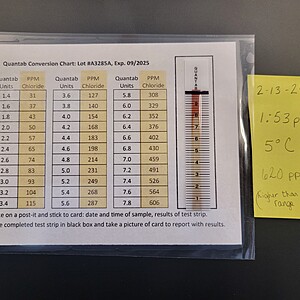 Quantab Conversion Chart: Lot #A3285A, Exp. 09/2025
Quantab Units PPM Chloride Quantab Units PPM Chloride Quantab Units PPM Chloride
1.4 31 3.6 127 5.8 308
1.6 37 3.8 140 6.0 329
1.8 43 4.0 154 6.2 352
2.0 50 4.2 168 6.4 376
2.2 57 4.4 183 6.6 402
2.4 65 4.6 198 6.8 430
2.6 74 4.8 214 7.0 459
2.8 83 5.0 231 7.2 491
3.0 93 5.2 249 7.4 526
3.2 104 5.4 268 7.6 564
3.4 115 5.6 287 7.8 606
e on a post-it and stick to card: date and time of sample, results of test strip.
e completed test strip in black box and take a picture of card to report with results.
QUANTAB
2-13-2
1:53 p
5°C
620 pp
higher than
range